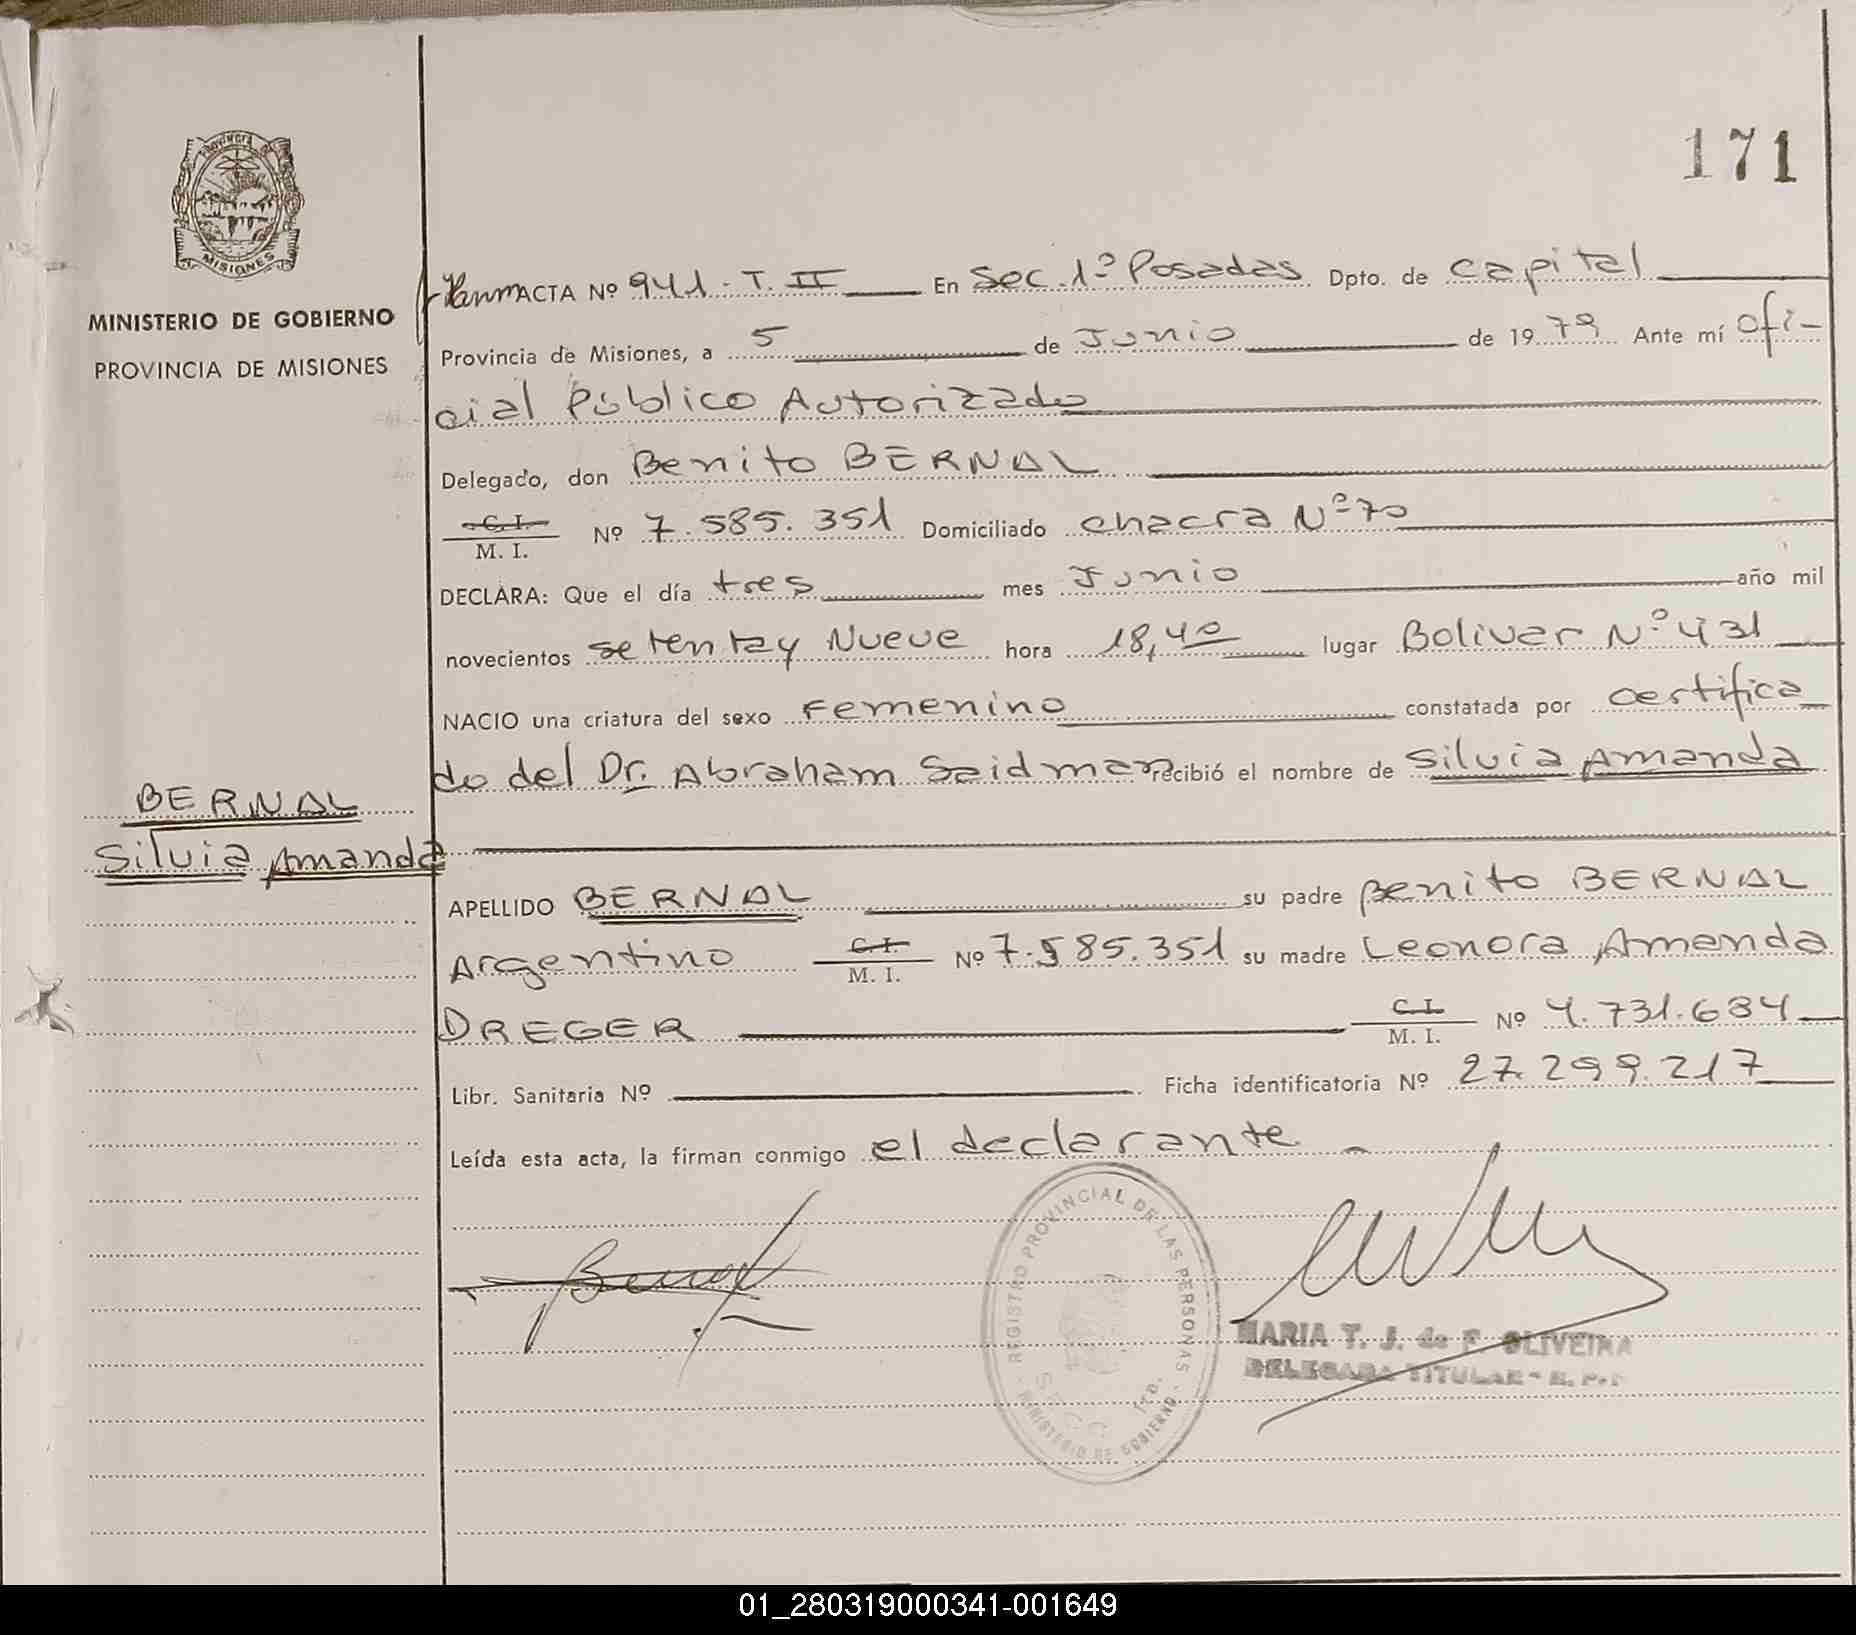 171
PROVINCIA
MISIONES
MINISTERIO DE GOBIERNO
PROVINCIA DE MISIONES
ACTA Nº 941 - T. II En Sec. 1º Posadas Dpto. de Capital
Provincia de Misiones, a 5 de Junio de 1979 Ante mí Ofi-
cial Público Autorizado
Delegado, don Benito BERNAL
C. I.
M. I. Nº 7.585.351 Domiciliado chacra Nº 70
DECLARA: Que el día tres mes Junio año mil
novecientos setenta y Nueve hora 18,40 lugar Bolivar Nº 431
NACIO una criatura del sexo Femenino constatada por certifica
do del Dr. Abraham Saidman recibió el nombre de Silvia Amanda
BERNAL
Silvia Amanda
APELLIDO BERNAL su padre Benito BERNAL
Argentino C. I.
M. I. Nº 7.585.351 su madre Leonora Amanda
DREGER C. I.
M. I. Nº 4.731.684
Libr. Sanitaria Nº Ficha identificatoria Nº 27.299.217
Leída esta acta, la firman conmigo el declarante
REGISTRO PROVINCIAL DE LAS PERSONAS
MINISTERIO DE GOBIERNO
MARIA T. J. de F. OLIVEIRA
DELEGADA TITULAR - R. P. P.
01_280319000341-001649